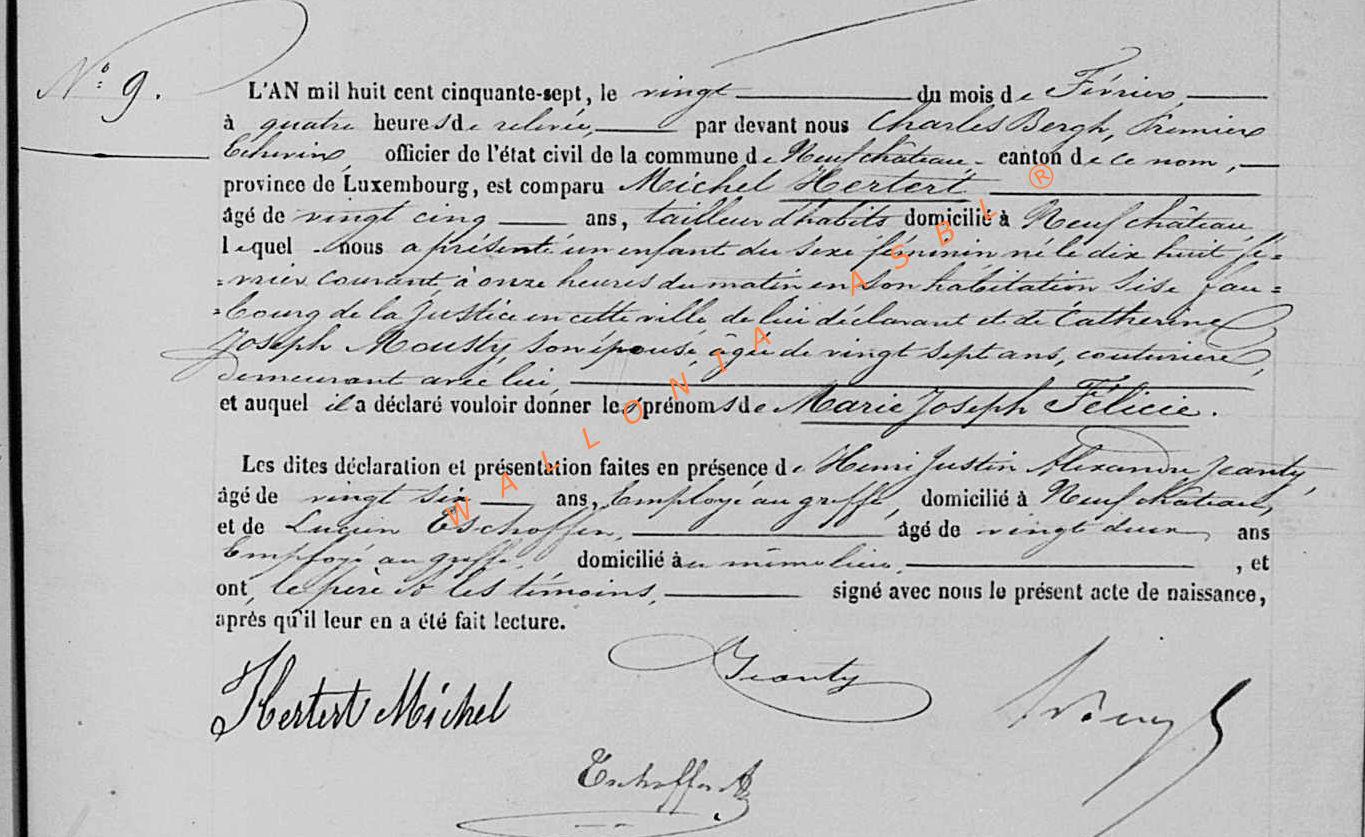 N° 9.
L'AN mil huit cent cinquante-sept, le vingt du mois de Février
à quatre heures de relevée, par devant nous Charles Bergh, Premier
Echevin, officier de l'état civil de la commune de Neufchâteau canton de ce nom,
province de Luxembourg, est comparu Michel Hertert
âgé de vingt cinq ans, tailleur d'habits domicilié à Neufchâteau,
lequel nous a présenté un enfant du sexe féminin né le dix huit fé=
=vrier courant à onze heures du matin en son habitation sise fau=
=bourg de la Justice en cette ville de lui déclarant et de Catherine
Joseph Mousty, son épouse, âgée de vingt sept ans, couturière,
demeurant avec lui,
et auquel il a déclaré vouloir donner les prénoms de Marie Joseph Félicie.
Les dites déclaration et présentation faites en présence de Henri Justin Alexandre Jeanty,
âgé de vingt six ans, Employé au greffe, domicilié à Neufchâteau,
et de Lucien Eschoffen, âgé de vingt deux ans
Employé au greffe, domicilié au même lieu, , et
ont, le père & les témoins, signé avec nous le présent acte de naissance,
après qu'il leur en a été fait lecture.
Hertert Michel
Jeanty
Eschoffen
WALLONIA ASBL ®